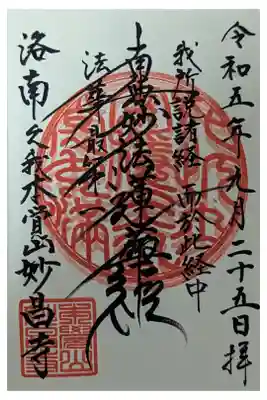 令和五年九月二十五日拝
我所説諸経 而於此経中
南無妙法蓮華経
法華最第一
洛南久我本覚山妙昌寺